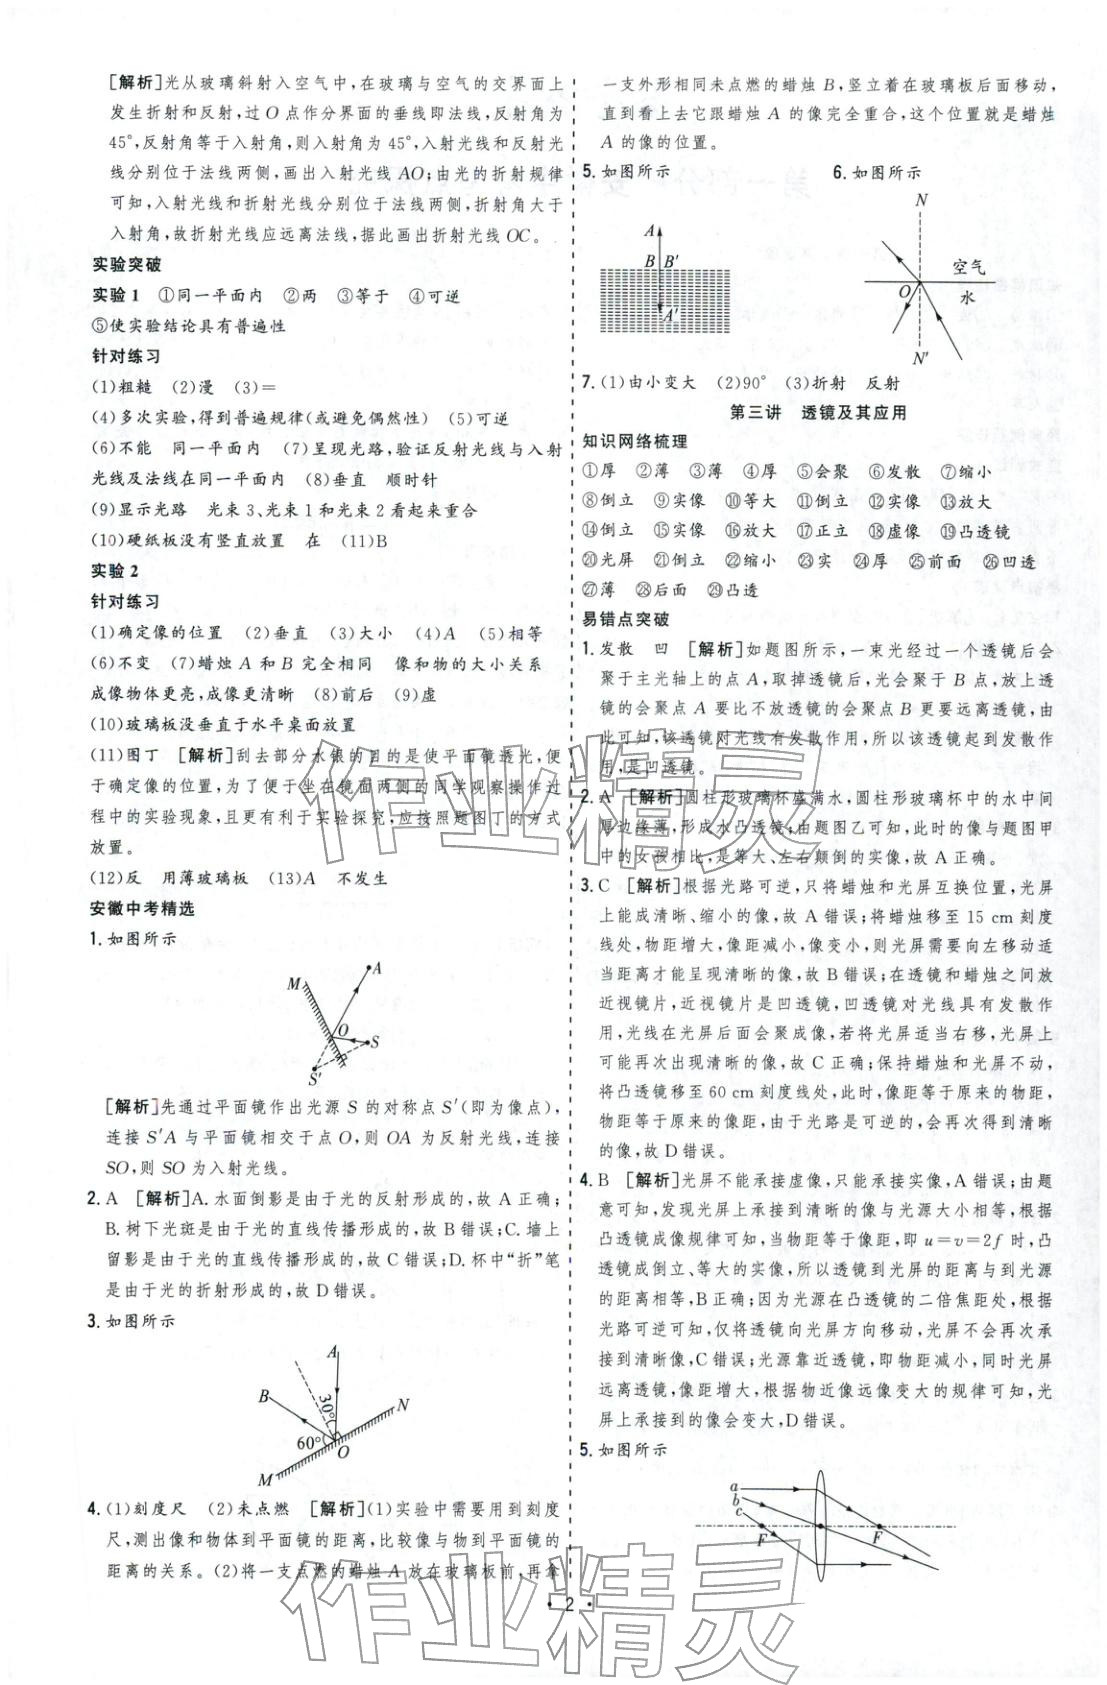 [解析]光从玻璃斜射入空气中,在玻璃与空气的交界面上
发生折射和反射,过 O 点作分界面的垂线即法线,反射角为
45°,反射角等于入射角,则入射角为 45°,入射光线和反射光
线分别位于法线两侧,画出入射光线 AO;由光的折射规律
可知,入射光线和折射光线分别位于法线两侧,折射角大于
入射角,故折射光线应远离法线,据此画出折射光线 OC。
实验突破
实验 1 ①同一平面内 ②两 ③等于 ④可逆
⑤使实验结论具有普遍性
针对练习
(1)粗糙 (2)漫 (3)=
(4)多次实验,得到普遍规律(或避免偶然性) (5)可逆
(6)不能 同一平面内 (7)呈现光路,验证反射光线与入射
光线及法线在同一平面内 (8)垂直 顺时针
(9)显示光路 光束 3、光束 1 和光束 2 看起来重合
(10)硬纸板没有竖直放置 在 (11)B
实验 2
针对练习
(1)确定像的位置 (2)垂直 (3)大小 (4)A (5)相等
(6)不变 (7)蜡烛 A 和 B 完全相同 像和物的大小关系
成像物体更亮,成像更清晰 (8)前后 (9)虚
(10)玻璃板没垂直于水平桌面放置
(11)图丁 [解析]刮去部分水银的目的是使平面镜透光,便
于确定像的位置,为了便于坐在镜面两侧的同学观察操作过
程中的实验现象,且更有利于实验探究,应按照题图丁的方式
放置。
(12)反 用薄玻璃板 (13)A 不发生
安徽中考精选
1. 如图所示
M
A
O
S
S′
[解析]先通过平面镜作出光源 S 的对称点 S′(即为像点),
连接 S′A 与平面镜相交于点 O,则 OA 为反射光线,连接
SO,则 SO 为入射光线。
2. A [解析]A. 水面倒影是由于光的反射形成的,故 A 正确;
B. 树下光斑是由于光的直线传播形成的,故 B 错误;C. 墙上
留影是由于光的直线传播形成的,故 C 错误;D. 杯中“折”笔
是由于光的折射形成的,故 D 错误。
3. 如图所示
A
B
30°
N
60°
O
M
4. (1)刻度尺 (2)未点燃 [解析](1)实验中需要用到刻度
尺,测出像和物体到平面镜的距离,比较像与物到平面镜的
距离的关系。(2)将一支点燃的蜡烛 A 放在玻璃板前,再拿
一支外形相同未点燃的蜡烛 B,竖立着在玻璃板后面移动,
直到看上去它跟蜡烛 A 的像完全重合,这个位置就是蜡烛
A 的像的位置。
5. 如图所示 6. 如图所示
A
B B′
A′
N
空气
O
水
N′
7. (1)由小变大 (2)90° (3)折射 反射
第三讲 透镜及其应用
知识网络梳理
①厚 ②薄 ③薄 ④厚 ⑤会聚 ⑥发散 ⑦缩小
⑧倒立 ⑨实像 ⑩等大 ⑪倒立 ⑫实像 ⑬放大
⑭倒立 ⑮实像 ⑯放大 ⑰正立 ⑱虚像 ⑲凸透镜
⑳光屏 ㉑倒立 ㉒缩小 ㉓实 ㉔厚 ㉕前面 ㉖凹透
㉗薄 ㉘后面 ㉙凸透
易错点突破
1. 发散 凹 [解析]如题图所示,一束光经过一个透镜后会
聚于主光轴上的点 A,取掉透镜后,光会聚于 B 点,放上透
镜的会聚点 A 要比不放透镜的会聚点 B 更要远离透镜,由
此可知,该透镜对光线有发散作用,所以该透镜起到发散作
用,是凹透镜。
2. A [解析]圆柱形玻璃杯盛满水,圆柱形玻璃杯中的水中间
厚边缘薄,形成水凸透镜;由题图乙可知,此时的像与题图甲
中的女孩相比,是等大、左右颠倒的实像,故 A 正确。
3. C [解析]根据光路可逆,只将蜡烛和光屏互换位置,光屏
上能成清晰、缩小的像,故 A 错误;将蜡烛移至 15 cm 刻度
线处,物距增大,像距减小,像变小,则光屏需要向左移动适
当距离才能呈现清晰的像,故 B 错误;在透镜和蜡烛之间放
近视镜片,近视镜片是凹透镜,凹透镜对光线具有发散作
用,光线在光屏后面会聚成像,若将光屏适当右移,光屏上
可能再次出现清晰的像,故 C 正确;保持蜡烛和光屏不动,
将凸透镜移至 60 cm 刻度线处,此时,像距等于原来的物距,
物距等于原来的像距,由于光路是可逆的,会再次得到清晰
的像,故 D 错误。
4. B [解析]光屏不能承接虚像,只能承接实像,A 错误;由题
意可知,发现光屏上承接到清晰的像与光源大小相等,根据
凸透镜成像规律可知,当物距等于像距,即 u=v=2f 时,凸
透镜成倒立、等大的实像,所以透镜到光屏的距离与到光源
的距离相等,B 正确;因为光源在凸透镜的二倍焦距处,根据
光路可逆可知,仅将透镜向光屏方向移动,光屏不会再次承
接到清晰像,C 错误;光源靠近透镜,即物距减小,同时光屏
远离透镜,像距增大,根据物近像远像变大的规律可知,光
屏上承接到的像会变大,D 错误。
5. 如图所示
a
b
c
F
F
2
作业精灵
作业精灵